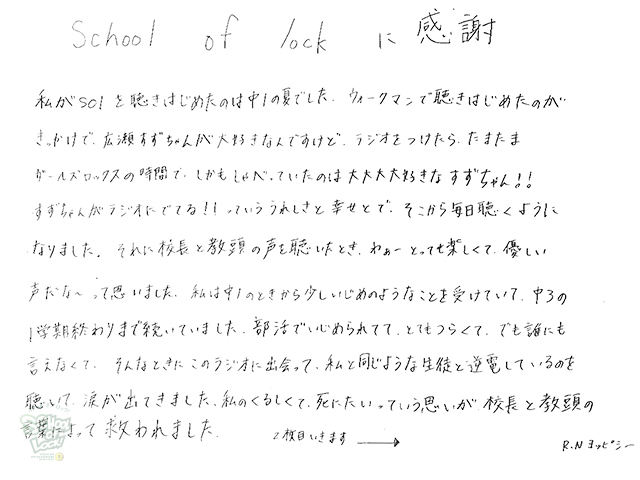 School of lock に 感謝
私がSOLを聴きはじめたのは中1の夏でした。ウォークマンで聴きはじめたのが
きっかけで、広瀬すずちゃんが大好きなんですけど、ラジオをつけたら、たまたま
ガールズロックスの時間で、しかもしゃべっていたのは大大大大好きなすずちゃん!!
すずちゃんがラジオにでてる!!っていううれしさと幸せとで、そこから毎日聴くように
なりました。それに校長と教頭の声を聴いたとき、わぁーとっても楽しくて、優しい
声だな〜って思いました。私は中1のときから少しいじめのようなことを受けていて、中3の
1学期終わりまで続いていました。部活でいじめられてて、とてもつらくて、でも誰にも
言えなくて、そんなときにこのラジオに出会って、私と同じような生徒と逆電しているのを
聴いて、涙が出てきました。私のくるしくて、死にたいっていう思いが校長と教頭の
言葉によって救われました。
2枚目いきます →
R.N ヨッピシー